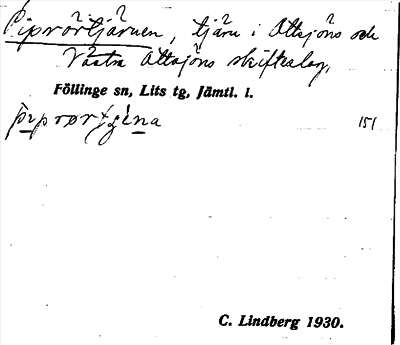 Piprörtjärnen, tjärn i Ottsjöns och
Västra Ottsjöns skifteslag,
Föllinge sn, Lits tg, Jämtl. l.
151
C. Lindberg 1930.